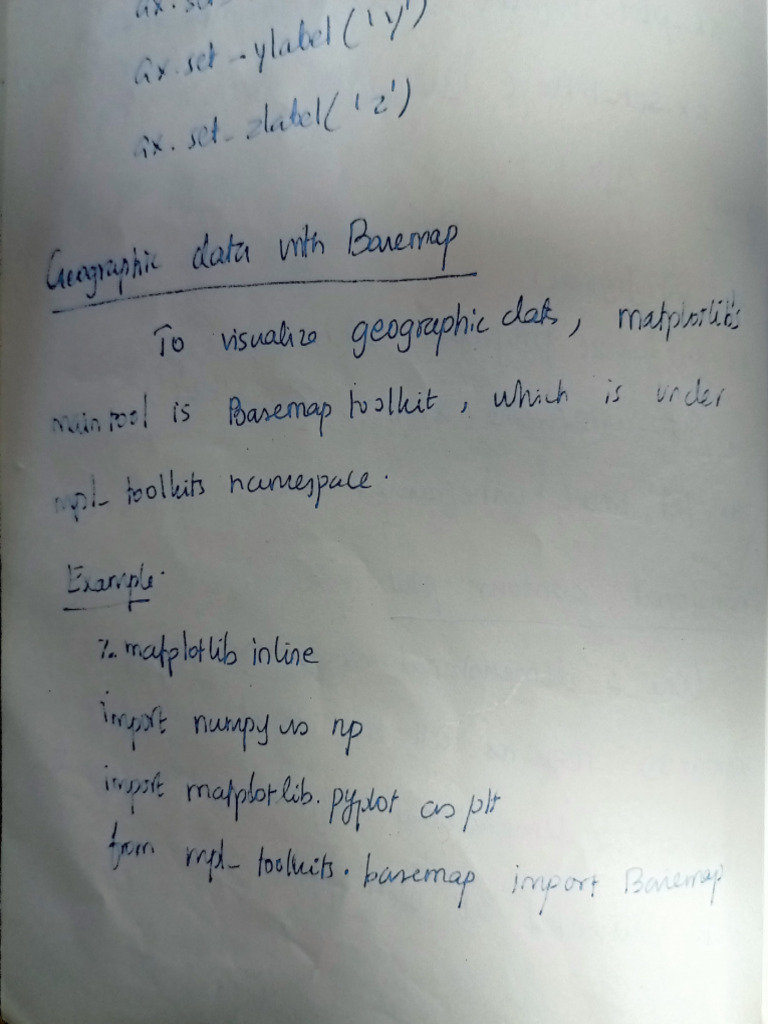 ax.set
ax.set_ylabel('y')
ax.set_zlabel('z')
Geographic data with Basemap
To visualize geographic data, matplotlib's
main tool is Basemap toolkit, which is under
mpl_toolkits namespace.
Example.
% matplotlib inline
import numpy as np
import matplotlib.pyplot as plt
from mpl_toolkits.basemap import Basemap